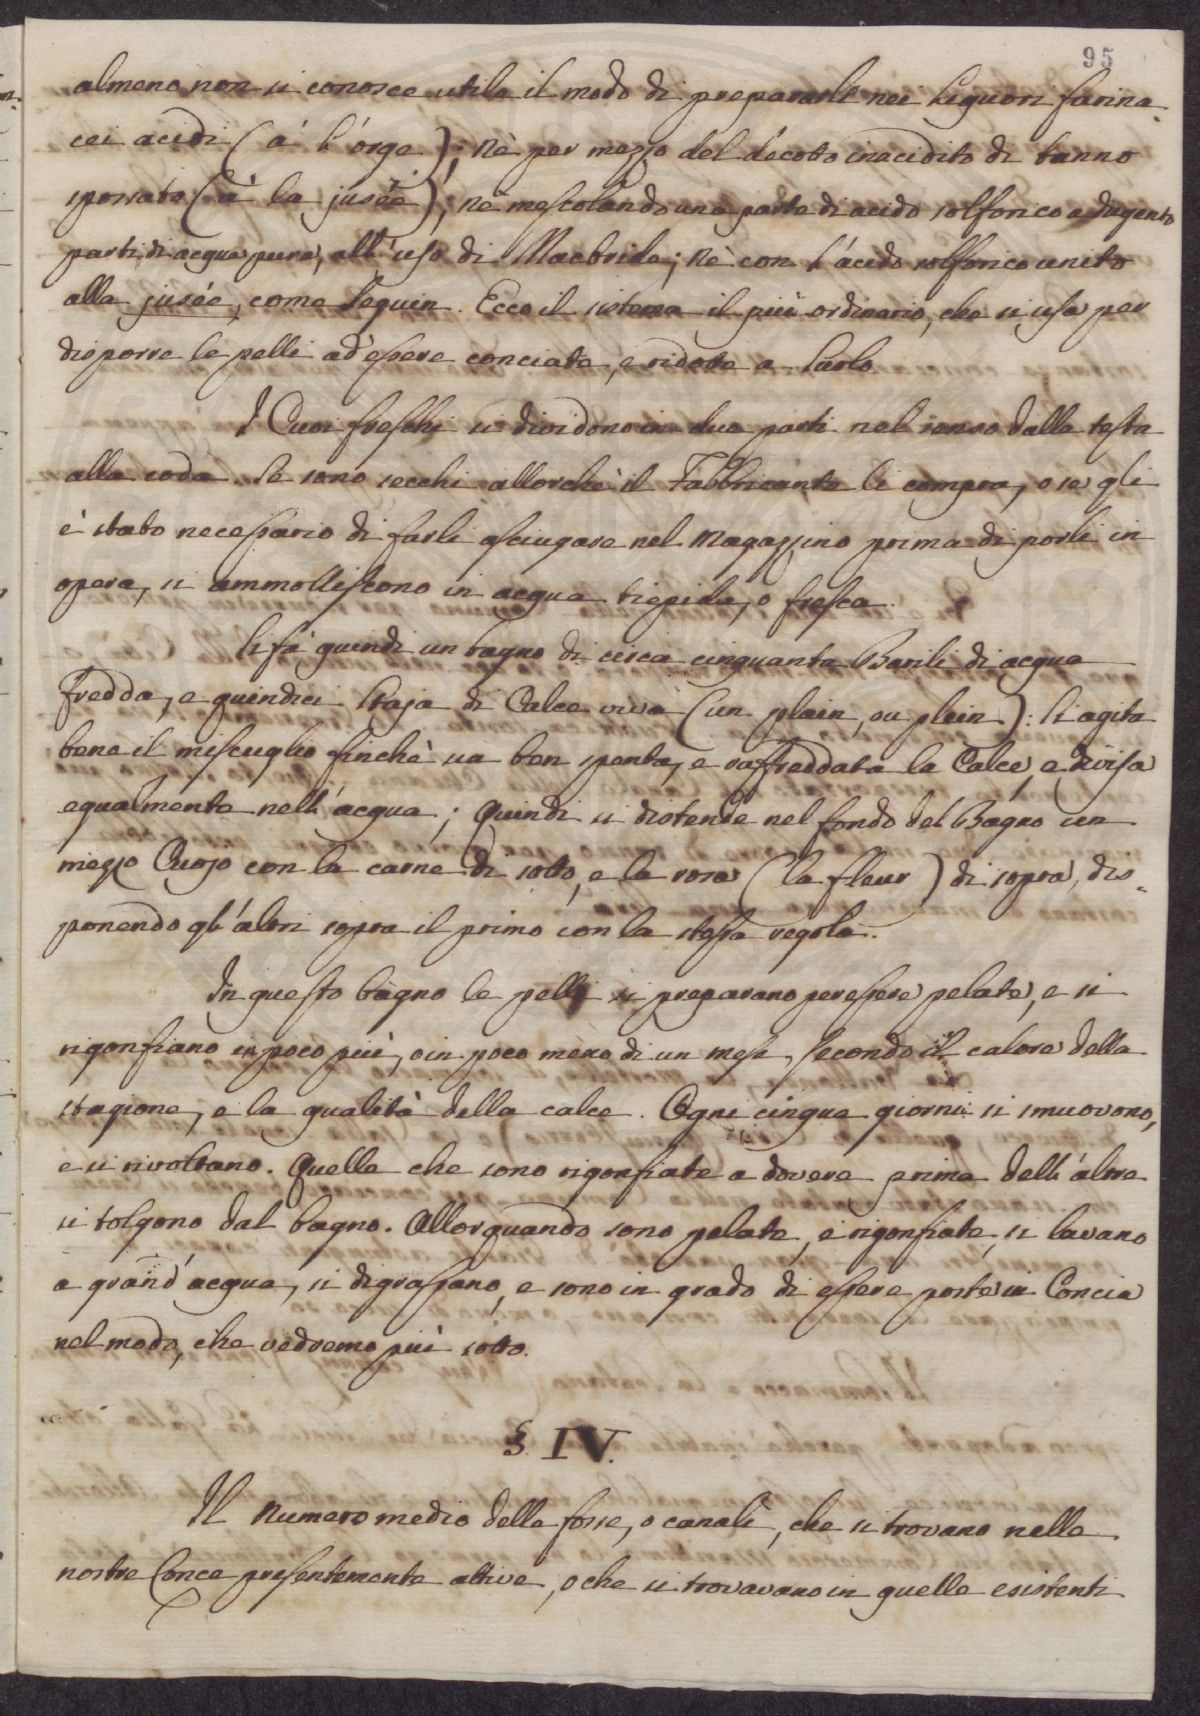 95
almeno non si conosce utile il modo di prepararle nei liquori farina-
cei acidi (à l'orge); Nè per mezzo del decoto inacidito di tanno
spossato (à la jusée); Nè mescolando una parte di acido solforico a dugento
parti di acqua pura, all'uso di Macbride; Nè con l'acido solforico unito
alla jusée, come Seguin. Ecco il sistema il più ordinario, che si usa per
disporre le pelli ad essere conciate, e ridotte a Suolo.
I Cuoi freschi si dividono in due parti nel senso dalla testa
alla coda. Se sono secchi allorchè il Fabbricante li compra, o se gli
è stato necessario di farli asciugare nel Magazzino prima di porli in
opera, si ammolliscono in acqua tiepida, o fresca.
Si fà quindi un bagno di circa cinquanta Barili di acqua
fredda, e quindici Staja di Calce viva (un plain, ou plein): Si agita
bene il miscuglio finchè sia ben spenta, e raffreddata la Calce, e divisa
egualmente nell'acqua; Quindi si distende nel fondo del Bagno un
mezzo Cuojo con la carne di sotto, e la rosa (la fleur) di sopra, dis-
ponendo gl'altri sopra il primo con la stessa regola.
In questo bagno le pelli si preparano per essere pelate, e si
rigonfiano in poco più, o in poco meno di un mese, secondo il calore della
stagione, e la qualità della calce. Ogni cinque giorni si smuovono,
e si rivoltano. Quelle che sono rigonfiate a dovere prima dell'altre
si tolgono dal bagno. Allorquando sono pelate, e rigonfiate, si lavano
a grand'acqua, si digrassano, e sono in grado di essere poste in Concia
nel modo, che vedremo più sotto.
§. IV.
Il Numero medio delle fosse, o canali, che si trovano nelle
nostre Conce presentemente attive, o che si trovavano in quelle esistenti